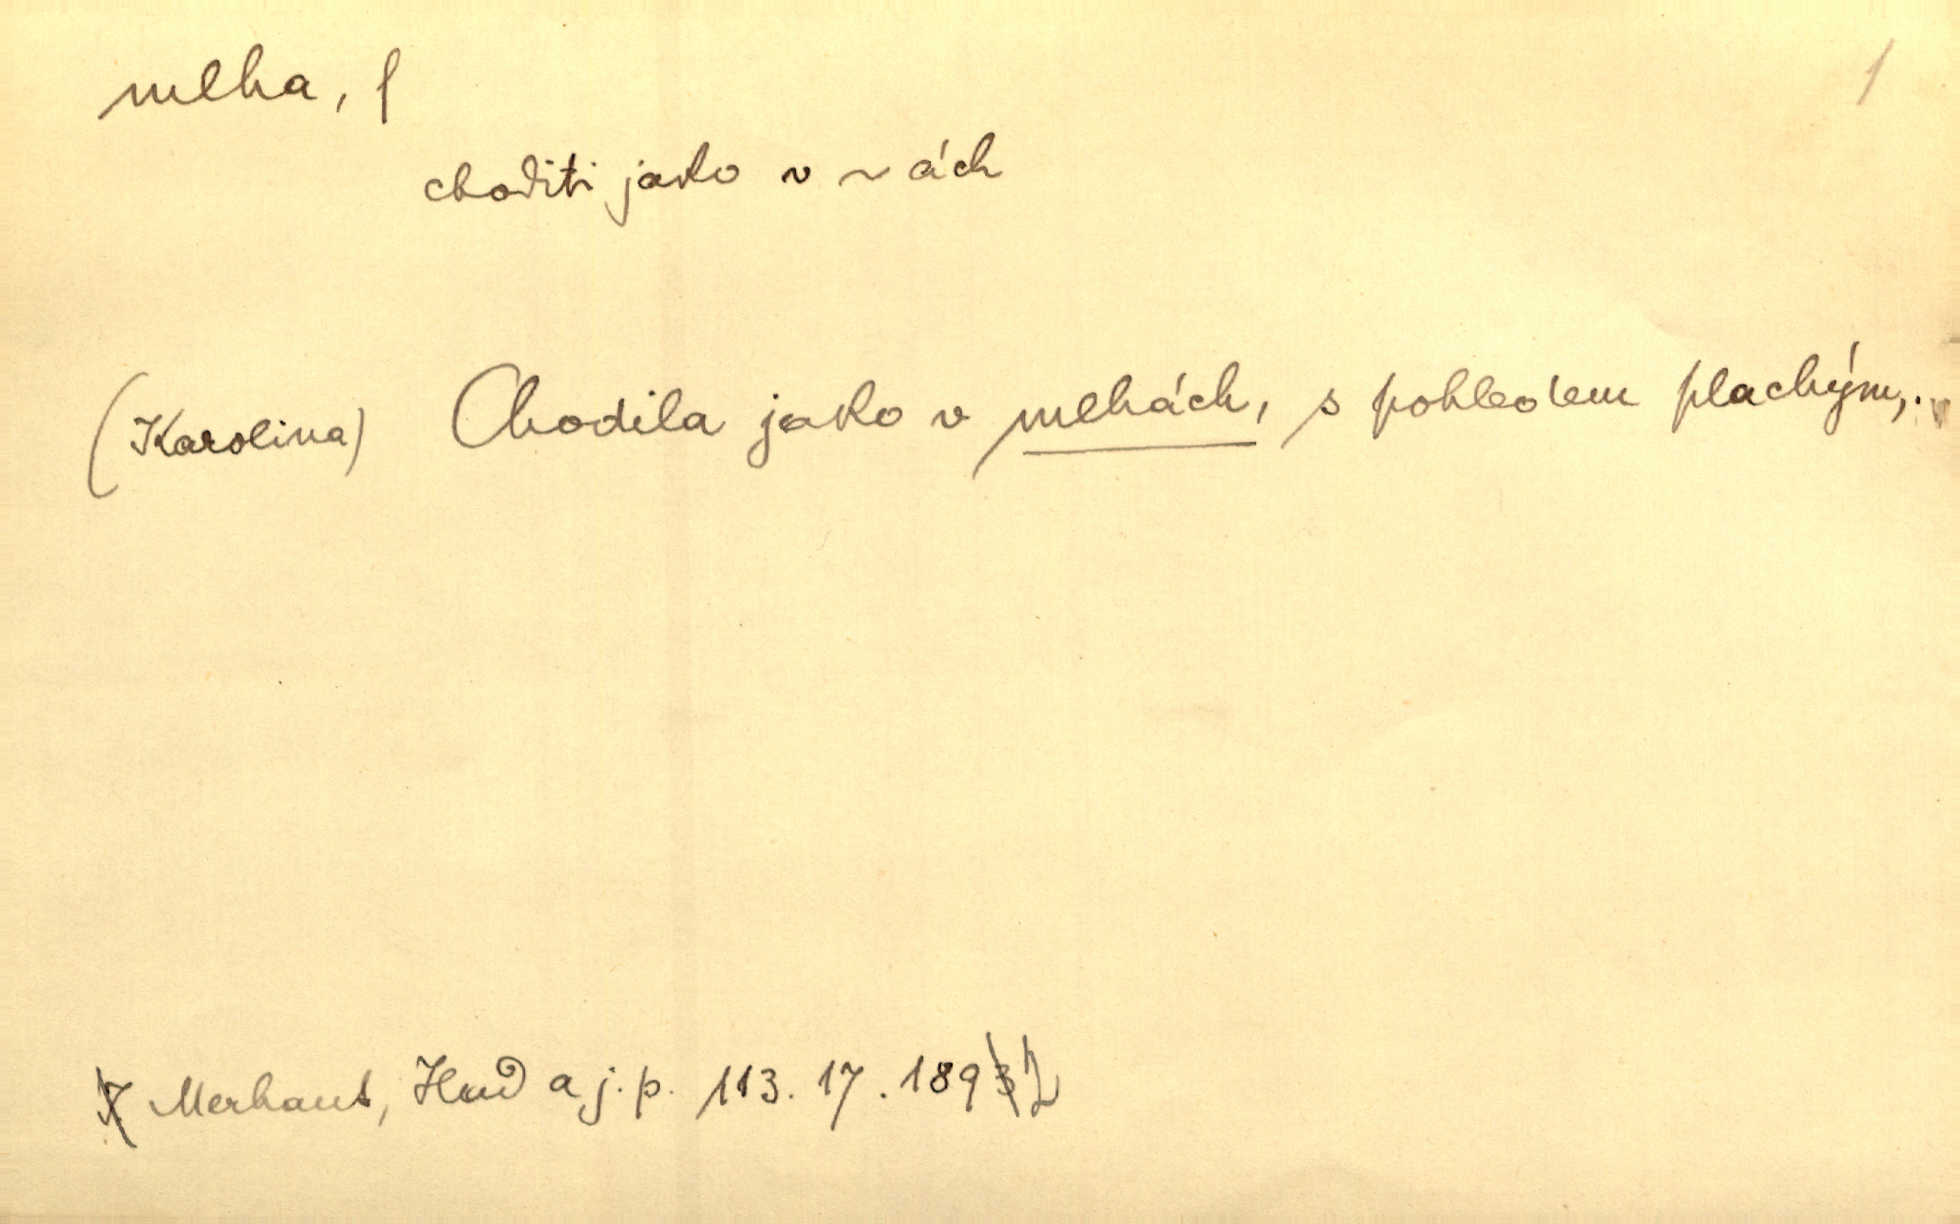 mlha, f 1
choditi jako v ~ ách
(Karolina) Chodila jako v mlhách, s pohledem plachým,.
Merhaut, Had a j. p. 113. 17. 1892